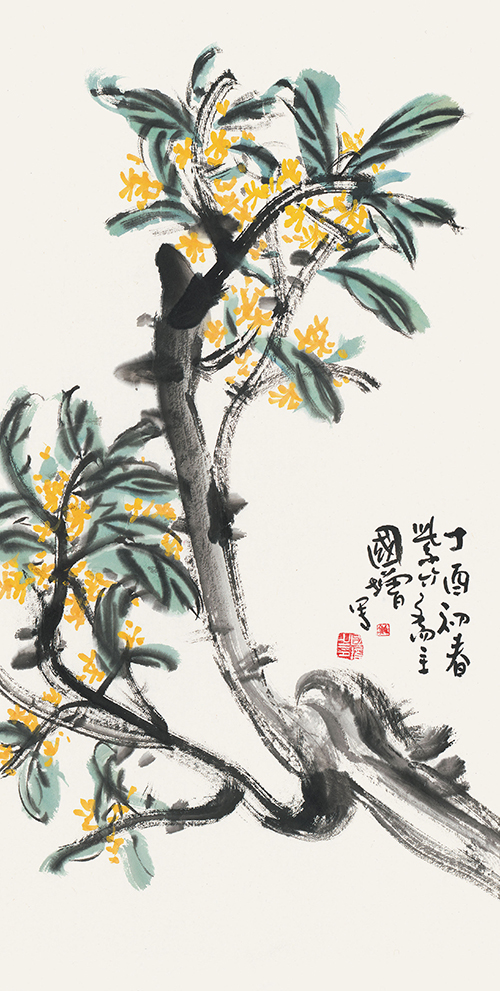 丁酉初春
紫竹斋主
國增写